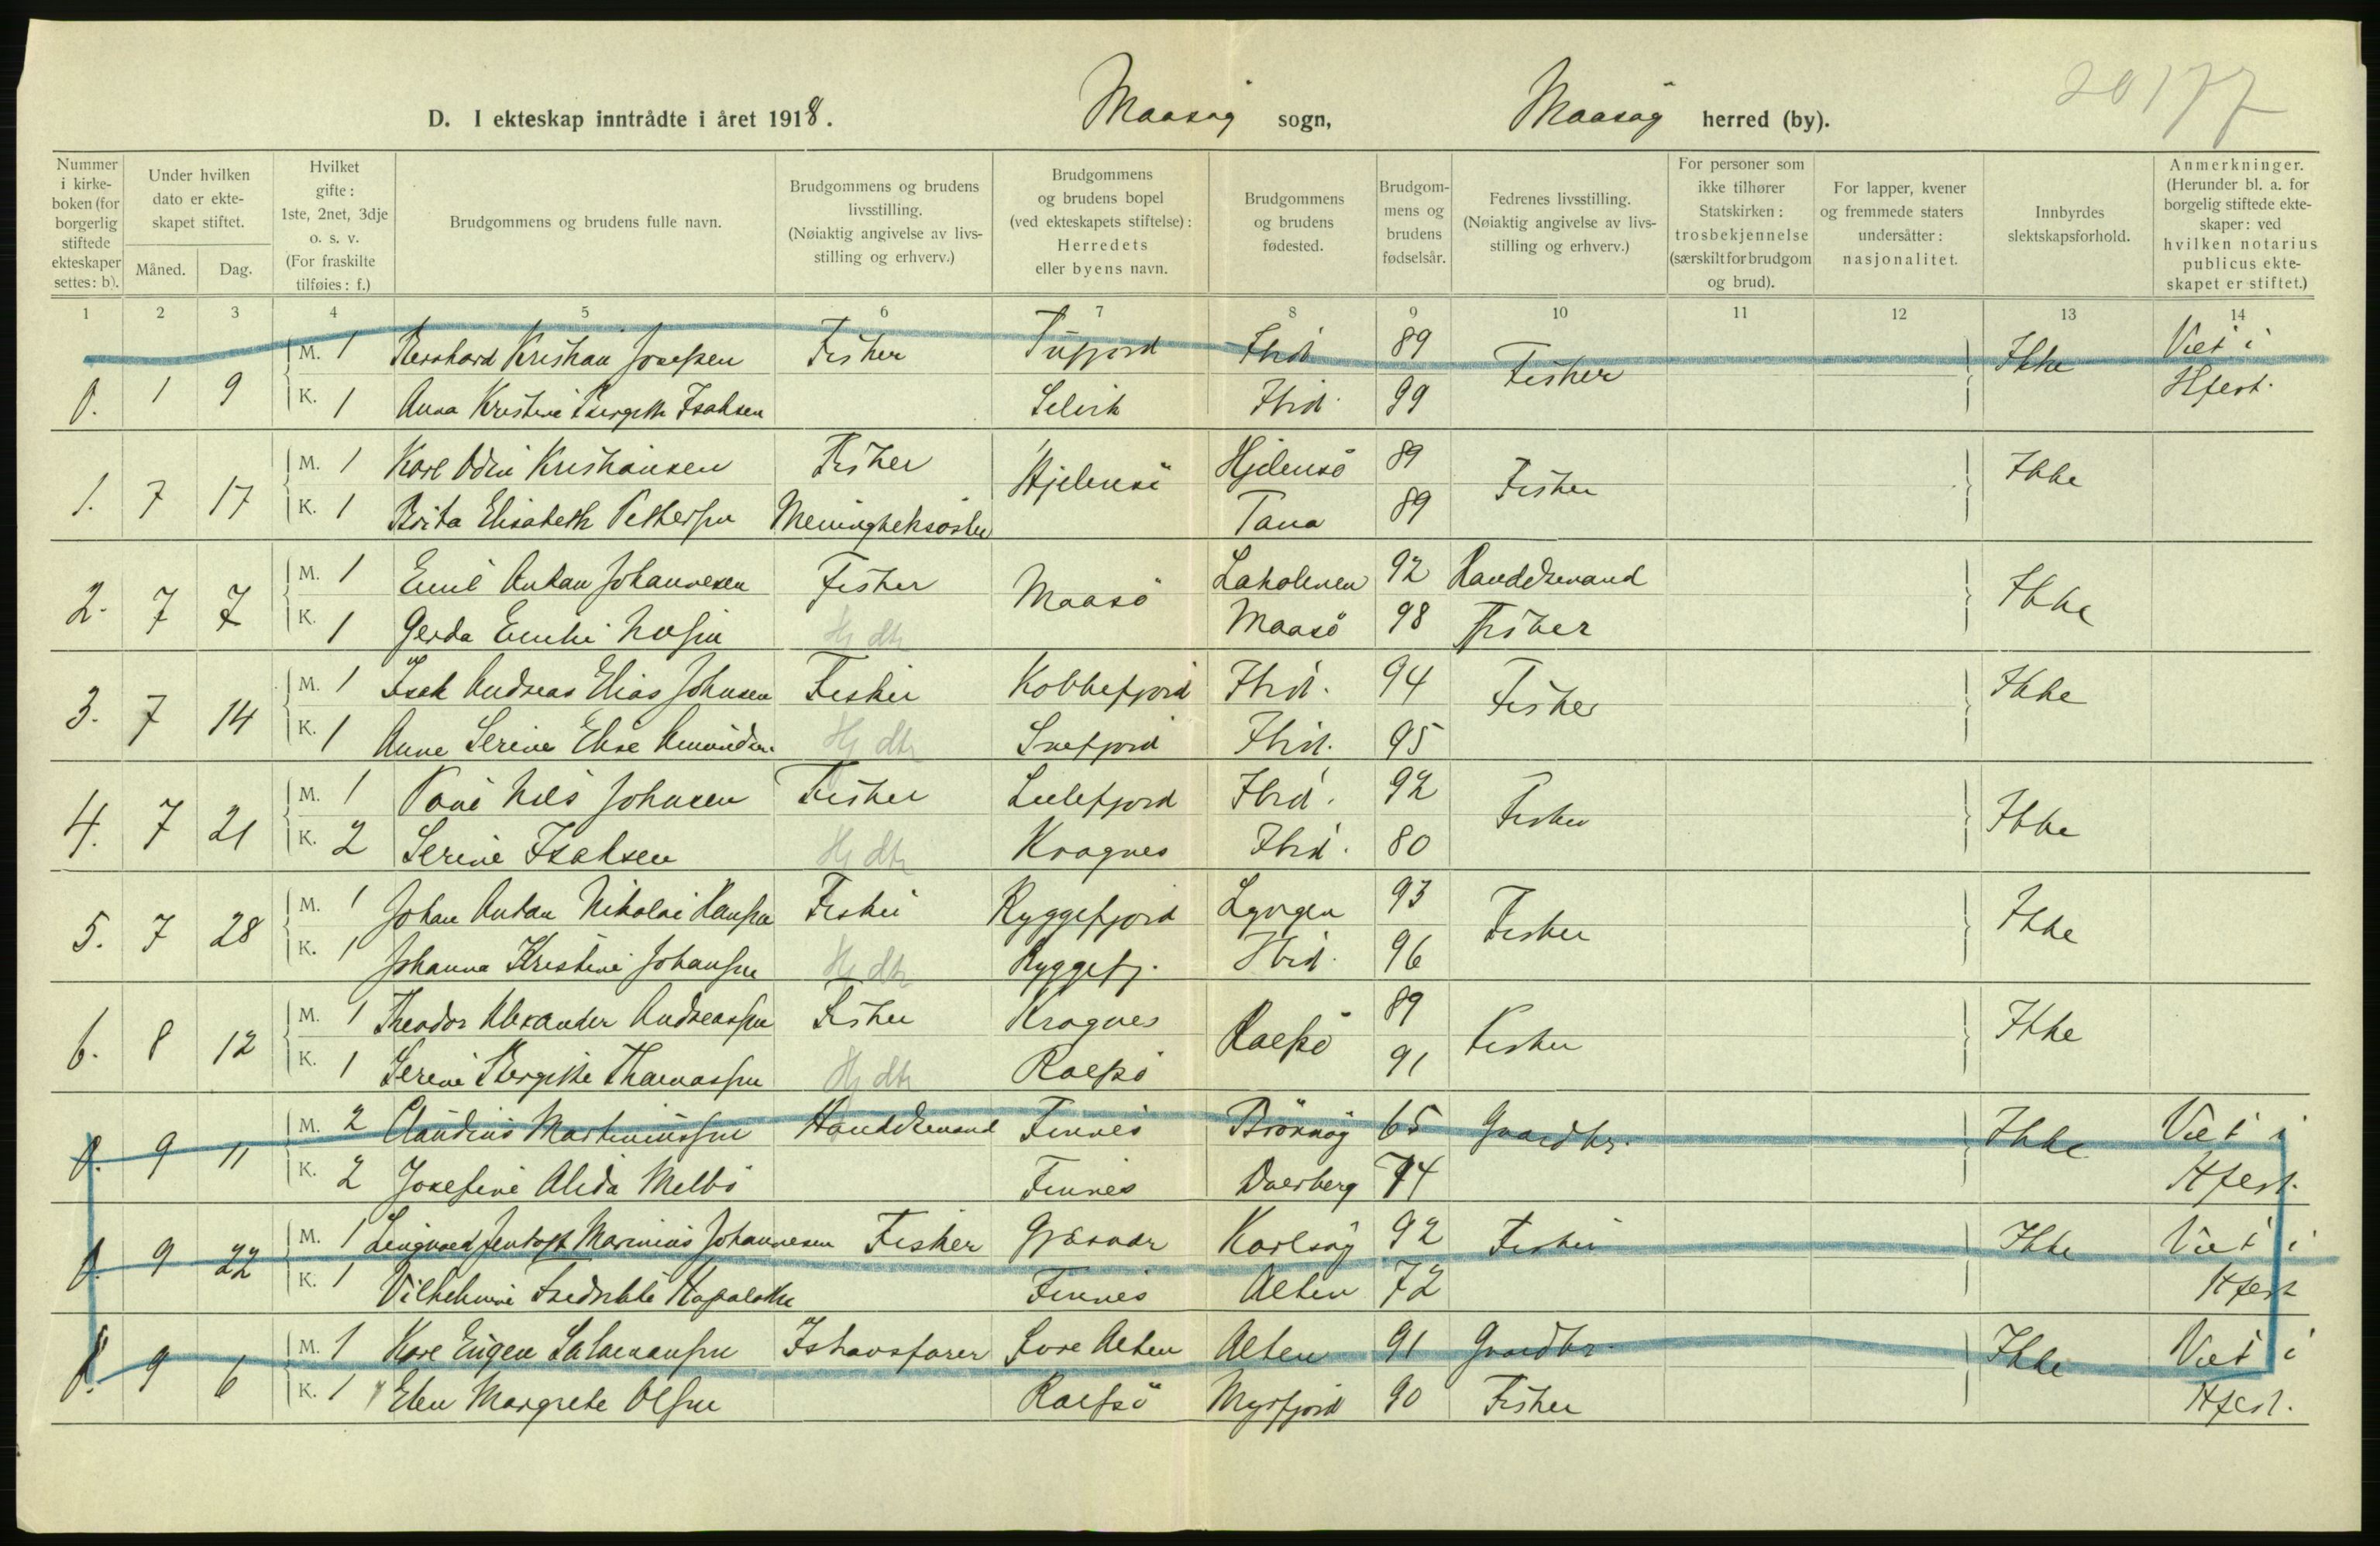 20177
D. I ekteskap inntrådte i året 1918. Maasøy sogn, Maasøy herred (by).
Nummer i kirkeboken (for borgerlig stiftede ekteskaper settes: b).
Under hvilken dato er ekteskapet stiftet.
Måned. Dag.
Hvilket gifte: 1ste, 2net, 3dje o. s. v. (For fraskilte tilføies: f.)
Brudgommens og brudens fulle navn.
Brudgommens og brudens livsstilling. (Nøiaktig angivelse av livsstilling og erhverv.)
Brudgommens og brudens bopel (ved ekteskapets stiftelse): Herredets eller byens navn.
Brudgommens og brudens fødested.
Brudgommens og brudens fødselsår.
Fedrenes livsstilling. (Nøiaktig angivelse av livsstilling og erhverv.)
For personer som ikke tilhører Statskirken: trosbekjennelse (særskilt for brudgom og brud).
For lapper, kvener og fremmede staters undersåtter: nasjonalitet.
Innbyrdes slektskapsforhold.
Anmerkninger. (Herunder bl. a. for borgelig stiftede ekteskaper: ved hvilken notarius publicus ekteskapet er stiftet.)
1 2 3 4 5 6 7 8 9 10 11 12 13 14
0. 1 9 M. 1 Bernhard Kristian Josefsen Fisker Tufjord Ibid. 89 Fisker Ikke Viet i
K. 1 Anna Kristine Bergitte Isaksen Selvik Ibid. 99 Hfest.
1. 7 17 M. 1 Karl Odin Kristiansen Fisker Hjelmsö Hjelmsö 89 Fisker Ikke
K. 1 Brita Elisabeth Pettersen Menighetssöster Tana 89
2. 7 7 M. 1 Emil Anton Johannesen Fisker Maasö Lakolven 92 Handelsmand Ikke
K. 1 Gerda Emilie Nilsen Hj dtr Maasö 98 Fisker
3. 7 14 M. 1 Isak Andreas Elias Johnsen Fisker Kobbefjord Ibid. 94 Fisker Ikke
K. 1 Anne Serine Elise Amundsen Hj dtr Snefjord Ibid. 95
4. 7 21 M. 1 Paul Nils Johnsen Fisker Lillefjord Ibid. 92 Fisker Ikke
K. 2 Serine Isaksen Hj dtr Kragnes Ibid. 80
5. 7 28 M. 1 Johan Anton Nikolai Hansen Fisker Ryggefjord Lyngen 93 Fisker Ikke
K. 1 Johanna Kristine Johansen Hj dtr Ryggefj. Ibid. 96
6. 8 12 M. 1 Theodor Alexander Andreassen Fisker Kragnes Rolfsö 89 Fisker Ikke
K. 1 Serine Bergitte Thomassen Hj dtr Rolfsö 91
0. 9 11 M. 2 Claudius Martinussen Handelsmand Finnes Brönnöy 65 Gaardbr. Ikke Viet i
K. 2 Josefine Alida Melbö Finnes 74 Hfest.
0. 9 22 M. 1 Jentoft Marinius Johannesen Fisker Karlsöy 92 Fisker Ikke Viet i
K. 1 Vilhelmine Fredrikke Finnes Alten 72 Hfest
0. 9 6 M. 1 Kare Eugen Salamonsen Ishavsfarer Lille Alten Alten 91 Gaardbr. Ikke Viet i
K. 1 Elen Margrete Olsen Rolfsö Myrfjord 90 Fisker Hfest.